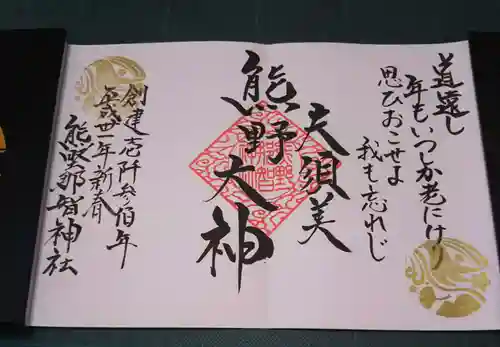 道遠し
年もいつしか老にけり
思ひおこせよ
我も忘れじ
夫須美
熊野大神
創建壱阡八百年
平成卅一年新春
熊野那智神社